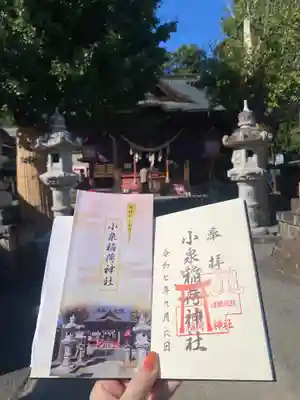 小泉稲荷神社
奉拝
小泉稲荷神社
令和七年九月六日
神社